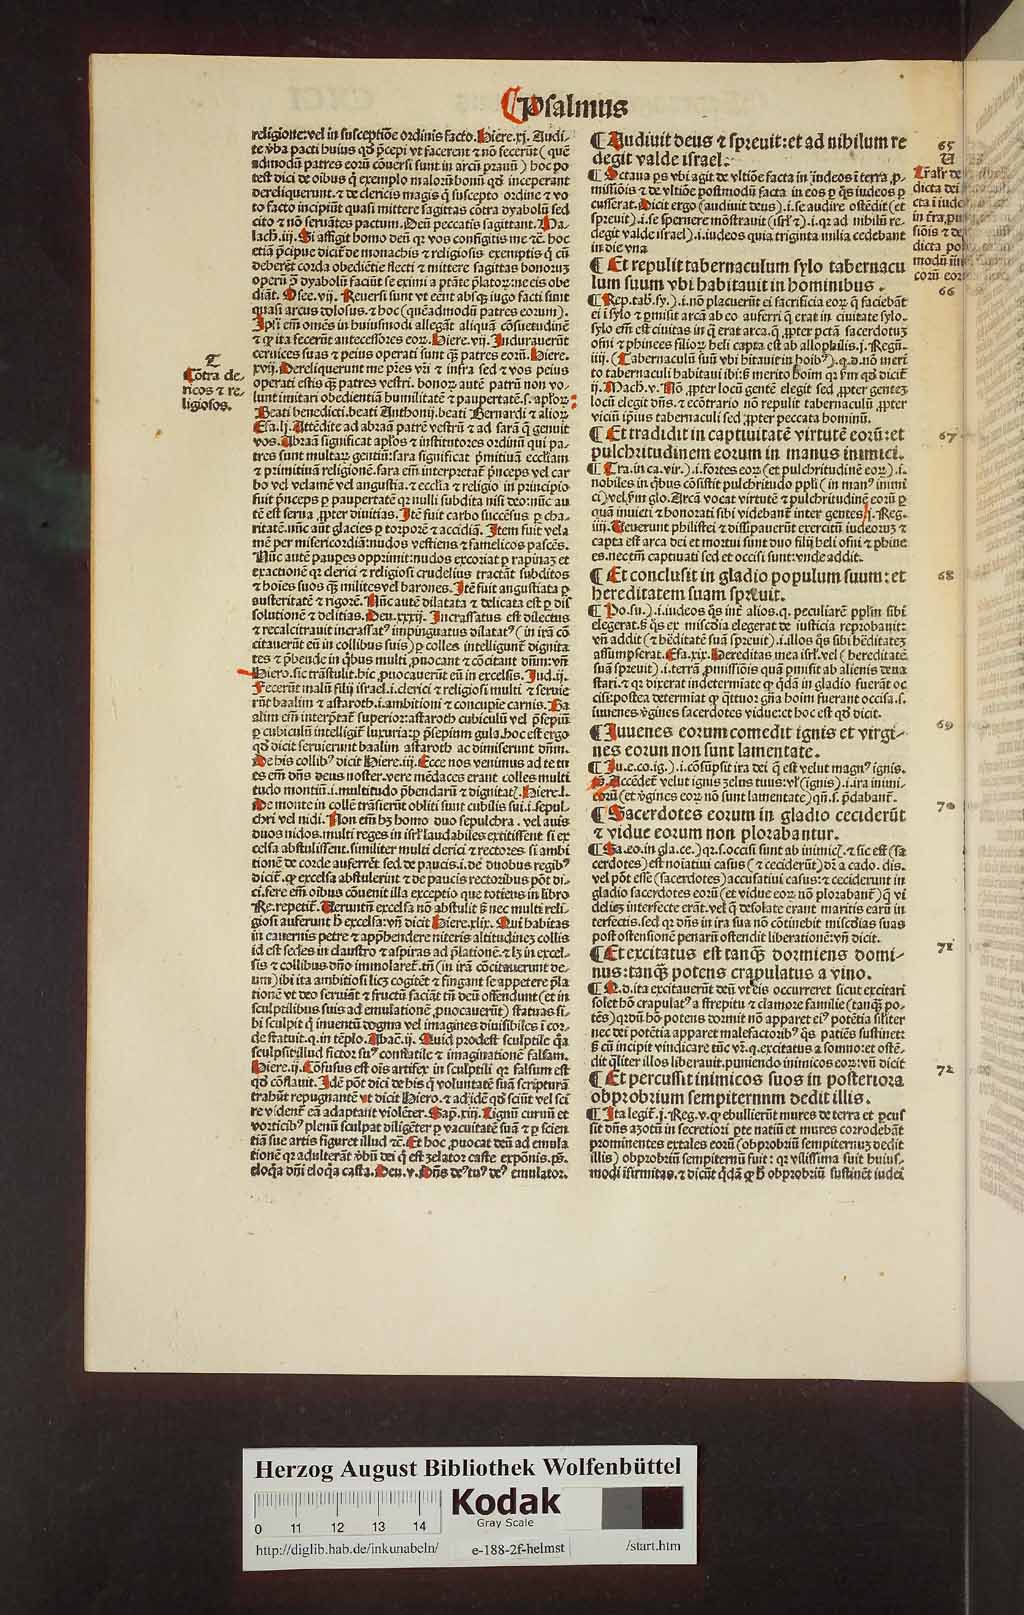 Psalmus
religione: vel in susceptiõe ordinis facto. Hiere.xj. Audi-
te v̾ba pacti huius qd̾ p̃cepi vt facerent ⁊ nõ fecerũt (quẽ
admodũ patres eorũ cõuersi sunt in arcũ prauũ) hoc po
test dici de oibus q̃ exemplo malorũ bonũ qd̾ inceperant
dereliquerunt. ⁊ de clericis magis q̃ suscepto ordine ⁊ vo
to facto incipiũt quasi mittere sagittas cõtra dyabolũ sed
cito ⁊ nõ seruãtes pactum. Deũ peccatis sagittant. Ma-
lach.iij. Si affigit homo deũ qꝛ vos configitis me ⁊c̃. hoc
etiã p̃cipue dicit̃ de monachis ⁊ religiosis exemptis q̃ cũ
deberẽt corda obediẽtie flecti ⁊ mittere sagittas bonoruꝫ
operũ ꝯ̃ dyabolũ faciũt se eximi a ptãte p̃latoꝝ: ne eis obe
diãt. Osee.vij. Reuersi sunt vt eẽnt absqꝫ iugo facti sunt
quasi arcus dolosus. ⁊ hoc (quẽadmodũ patres eorum).
Ipsi em̃ omẽs in huiusmodi allegãt aliquã cõsuetudinẽ
⁊ ꝙ ita fecerũt antecessores eoꝝ. Hiere.vij. Indurauerũt
ceruices suas ⁊ peius operati sunt q̃ꝫ patres eorũ. Hiere.
xvij. Dereliquerunt me p̃res vr̃i ⁊ infra sed ⁊ vos peius
operati estis q̃ꝫ patres vestri. bonoꝝ autẽ patrũ non vo-
lunt imitari obedientiã humilitatẽ ⁊ paupertatẽ.s.apl̃oꝝ
Beati benedicti. beati Anthonij. beati Bernardi ⁊ alioꝝ
Esa.lj. Attẽdite ad abraã patrẽ vestrũ ⁊ ad sarã q̃ genuit
vos. Abraã significat apl̃os ⁊ institutores ordinũ qui pa-
tres sunt multaꝝ gentiũ: sara significat p̃mitiuã eccl̃iam
⁊ primitiuã religionẽ. sara em̃ interpretat̃ p̃nceps vel car
bo vel velamẽ vel angustia. ⁊ eccl̃ia ⁊ religio in principio
fuit p̃nceps ꝑ paupertatẽ qꝛ nulli subdita nisi deo: nũc au
tẽ est serua ꝓpter diuitias. Itẽ fuit carbo succẽsus ꝑ cha-
ritatẽ. nũc aũt glacies ꝑ torporẽ ⁊ accidiã. Item fuit vela
mẽ per misericordiã: nudos vestiens ⁊ famelicos pascẽs.
Nũc autẽ paupes opprimit: nudos excoriat ꝑ rapinaꝫ et
exactionẽ qꝛ clerici ⁊ religiosi crudelius tractãt subditos
⁊ hoĩes suos q̃ꝫ milites vel barones. Itẽ fuit angustiata ꝑ
austeritatẽ ⁊ rigorẽ. Nũc autẽ dilatata ⁊ delicata est ꝑ dis
solutionẽ ⁊ delitias. Deu.xxxij. Incrassatus est dilectus
⁊ recalcitrauit incrassatꝰ impinguatus dilatatꝰ (in irã cõ
citauerũt eũ in collibus suis) ꝑ colles intelligunt̃ dignita
tes ⁊ p̃bende in q̃bus multi ꝓuocant ⁊ cõcitant dñm: vñ
Hiero. sic trãstulit. hic ꝓuocauerũt eũ in excelsis. Jud.ij.
Fecerũt malũ filij israel.i.clerici ⁊ religiosi multi ⁊ seruie
rũt baalim ⁊ astaroth.i.ambitioni ⁊ concupie carnis. Ba
alim em̃ interp̃tat̃ superior: astaroth cubiculũ vel p̃sepiũ
ꝑ cubiculũ intelligit̃ luxuria: ꝑ p̃sepium gula. hoc est ergo
qd̾ dicit seruierunt baalim astaroth ac dimiserunt dñm.
De his collibꝰ dicit Hiere.iij. Ecce nos venimus ad te tu
es em̃ dñs deus noster. vere mẽdaces erant colles multi
tudo montiũ.i.multitudo p̃bendarũ ⁊ dignitatũ. Hiere.l.
De monte in collẽ trãsierũt obliti sunt cubilis sui.i.sepul-
chri vel nidi. Non em̃ hꝫ homo duo sepulchra. vel auis
duos nidos. multi reges in isrl̃ laudabiles extitissent si ex
celsa abstulissent. similiter multi clerici ⁊ rectores si ambi
tionẽ de corde auferrẽt sed de paucis.i.de duobus regibꝰ
dicit̃. ꝙ excelsa abstulerint ⁊ de paucis rectoribus põt di-
ci. fere em̃ oibus cõuenit illa exceptio que totiens in libro
Re. repetit̃. Veruntũ excelsa nõ abstulit sꝫ nec multi reli-
giosi auferunt h̾ excelsa: vñ dicit Hiere.xlix. Qui habitas
in cauernis petre ⁊ app̃hendere niteris altitudineꝫ collis
id est sedes in claustro ⁊ aspiras ad p̃lationẽ. ⁊ lꝫ in excel-
sis ⁊ collibus dño immolaret̃. tñ (in irã cõcitauerunt de-
um) ibi ita ambitiosi licꝫ cogitẽt ⁊ fingant se appetere p̃la
tionẽ vt deo seruiãt ⁊ fructũ faciãt tñ deũ offendunt (et in
sculptilibus suis ad emulationẽ ꝓuocauerũt) statuas si-
bi sculpit q̃ inuentũ dogma vel imagines diuisibiles ĩ cor-
de statuit.q.in tẽplo. Abac̃.ij. Quid prodest sculptile q̃a
sculpsit illud fictor suꝰ conflatile ⁊ imaginationẽ falsam.
Hiere.ij. Cõfusus est oĩs artifex in sculptili qꝛ falsum est
qd̾ cõflauit. Idẽ põt dici de his q̃ voluntatẽ suã scripturã
trahũt repugnantẽ vt dicit Hiero. ⁊ ad idẽ qd̾ sciũt vel sci
re vident̃ eã adaptant violẽter. Sap̃.xiij. Lignũ curuũ et
vorticibꝰ plenũ sculpat diligẽter ꝑ vacuitatẽ suã ⁊ ꝑ scien
tiã sue artis figuret illud ⁊c̃. Et hoc ꝓuocat deũ ad emula
tionẽ qꝛ adulterãt v̾bũ dei q̃ est ꝫelator caste exp̃onis. p̃s.
eloq̃a dñi eloq̃a casta. Deu.v. Dñs deꝰ tuꝰ deꝰ emulator.
T
Cõtra cle-
ricos ⁊ re-
ligiosos.
¶ Audiuit deus ⁊ spreuit: et ad nihilum re
degit valde israel.
¶ Octaua ps vbi agit de vltiõe facta in iudeos ĩ terra ꝓ-
missiõis ⁊ de vltiõe postmodũ facta in eos ꝑ q̃s iudeos ꝑ
cusserat. Dicit ergo (audiuit deus).i.se audire ostẽdit (et
spreuit).i.se spernere mõstrauit (isrl̃ ⁊).i.qꝛ ad nihilũ re-
degit valde israel).i.iudeos quia triginta milia cedebant
in die vna
¶ Et repulit tabernaculum sylo tabernacu
lum suum vbi habitauit in hominibus.
¶ Rep.tab̾.sy.).i.nõ placuerũt ei sacrificia eoꝝ q̃ faciebãt
ei ĩ sylo ⁊ ꝑmisit arcã ab eo auferri q̃ erat in ciuitate sylo.
sylo em̃ est ciuitas in q̃ erat arca. q̃ ꝓpter pctã sacerdotuꝫ
ofni ⁊ phinees filioꝝ heli capta est ab allophilis. j. Regũ.
iiij. (Tabernaculũ suũ vbi hitauit in hoibꝰ).q.d. nõ meri
to tabernaculi habitaui ibi: sꝫ merito hoim qꝛ vm̃ qd̾ dicit̃
ij. Mach.v. Nõ ꝓpter locũ gentẽ elegit sed ꝓpter genteꝫ
locũ elegit dñs. ⁊ ecõtrario nõ repulit tabernaculũ ꝓpter
viciũ ipsius tabernaculi sed ꝓpter peccata hominũ.
¶ Et tradidit in captiuitatẽ virtutẽ eorũ: et
pulchritudinem eorum in manus inimici.
¶ Tra.in ca.vir.).i.fortes eoꝝ (et pulchritudinẽ eoꝝ).i.
nobiles in q̃bus cõsistit pulchritudo pp̃li (in manꝰ inimi
ci) vel s̃m glo. Arcã vocat virtutẽ ⁊ pulchritudinẽ eorũ ꝑ
quã inuicti ⁊ honorati sibi videbant̃ inter gentes. j. Reg.
iiij. Venerunt philistei ⁊ dissipauerũt exercitũ iudeoruꝫ ⁊
capta est arca dei et mortui sunt duo filij heli ofni ⁊ phine
es. nec tm̃ captiuati sed et occisi sunt: vnde addit.
¶ Et conclusit in gladio populum suum: et
hereditatem suam spreuit.
¶ Po.su.).i.iudeos q̃s inẽ alios.q.peculiarẽ pp̃lm sibi
elegerat. sꝫ q̃s ex miscdia elegerat de iusticia reprobauit:
vñ addit (⁊ h̾editatẽ suã spreuit).i.illos q̃s sibi h̾editateꝫ
assumpserat. Esa.xix. Hereditas mea isrl̃. vel (hereditatẽ
suã spreuit).i.terrã ꝓmissiõis quã ꝑmisit ab alienis deua
stari. ⁊ qꝛ dixerat indeterminate ꝙ qdã in gladio fuerãt oc
cisi: postea determiat ꝙ q̃ttuor gñã hoim fuerant occisa.s.
iuuenes v̾gines sacerdotes vidue: et hoc est qd̾ dicit.
¶ Iuuenes eorum comedit ignis et virgi-
nes eorum non sunt lamentate.
¶ Iu.e.co.ig.).i.cõsũpsit ira dei q̃ est velut magnꝰ ignis.
p̃s. Accẽdet̃ velut ignis ꝫelus tuus: vl̃ (ignis).i.ira inimi-
corũ (et v̾gines eoꝝ nõ sunt lamentate) qñ.s.p̃dabant̃.
¶ Sacerdotes eorum in gladio ceciderũt
⁊ vidue eorum non plorabantur.
¶ Sa.eo.in gla.ce.) qꝛ.s.occisi sunt ab inimicꝭ. ⁊ sic est (sa
cerdotes) est noĩatiui casus (⁊ ceciderũt) dr̃ a cado. dis.
vel põt esse (sacerdotes) accusatiui casus: ⁊ ceciderunt in
gladio sacerdotes eorũ (et vidue eoꝝ nõ plorabant̃) q̃ vi
delicꝫ interfecte erãt. vel q̃ desolate erant maritis earũ in
terfectis. sed qꝛ dñs in ira sua nõ cõtinebit miscdias suas
post ostensionẽ penarũ ostendit liberationẽ: vñ dicit.
¶ Et excitatus est tanq̃ꝫ dormiens domi-
nus: tanq̃ꝫ potens crapulatus a vino.
¶ Q.d. ita excitauerũt deũ vt eis occurreret sicut excitari
solet hõ crapulatꝰ a strepitu ⁊ clamore familie (tanq̃ꝫ po-
tẽs) qꝛ dũ hõ potens dormit nõ apparet eiꝰ potẽtia: siliter
nec dei potẽtia apparet malefactoribꝰ q̃s patiẽs sustinet:
sꝫ cũ incipit vindicare tũc vr̃.q.excitatus a somno: et ostẽ-
dit q̃liter illos liberauit. puniendo inimicos eoꝝ: vñ dicit
¶ Et percussit inimicos suos in posteriora
obprobrium sempiternum dedit illis.
¶ Ita legit̃. j. Reg.v. ꝙ ebullierũt mures de terra et pcus
sit dñs aꝫotũ in secretiori ꝑte natiũ et mures corrodebãt
prominentes extales eorũ (obprobriũ sempiternuꝫ dedit
illis) obprobriũ sempiternũ fuit: qꝛ vilissima fuit huius-
modi ĩfirmitas. ⁊ dicũt q̃dã ꝙ h̾ obprobriũ sustinẽt iudei
65
66
67
68
69
70
71
72
Herzog August Bibliothek Wolfenbüttel
Kodak
Gray Scale
0 11 12 13 14
http://diglib.hab.de/inkunabeln/ e-188-2f-helmst /start.htm